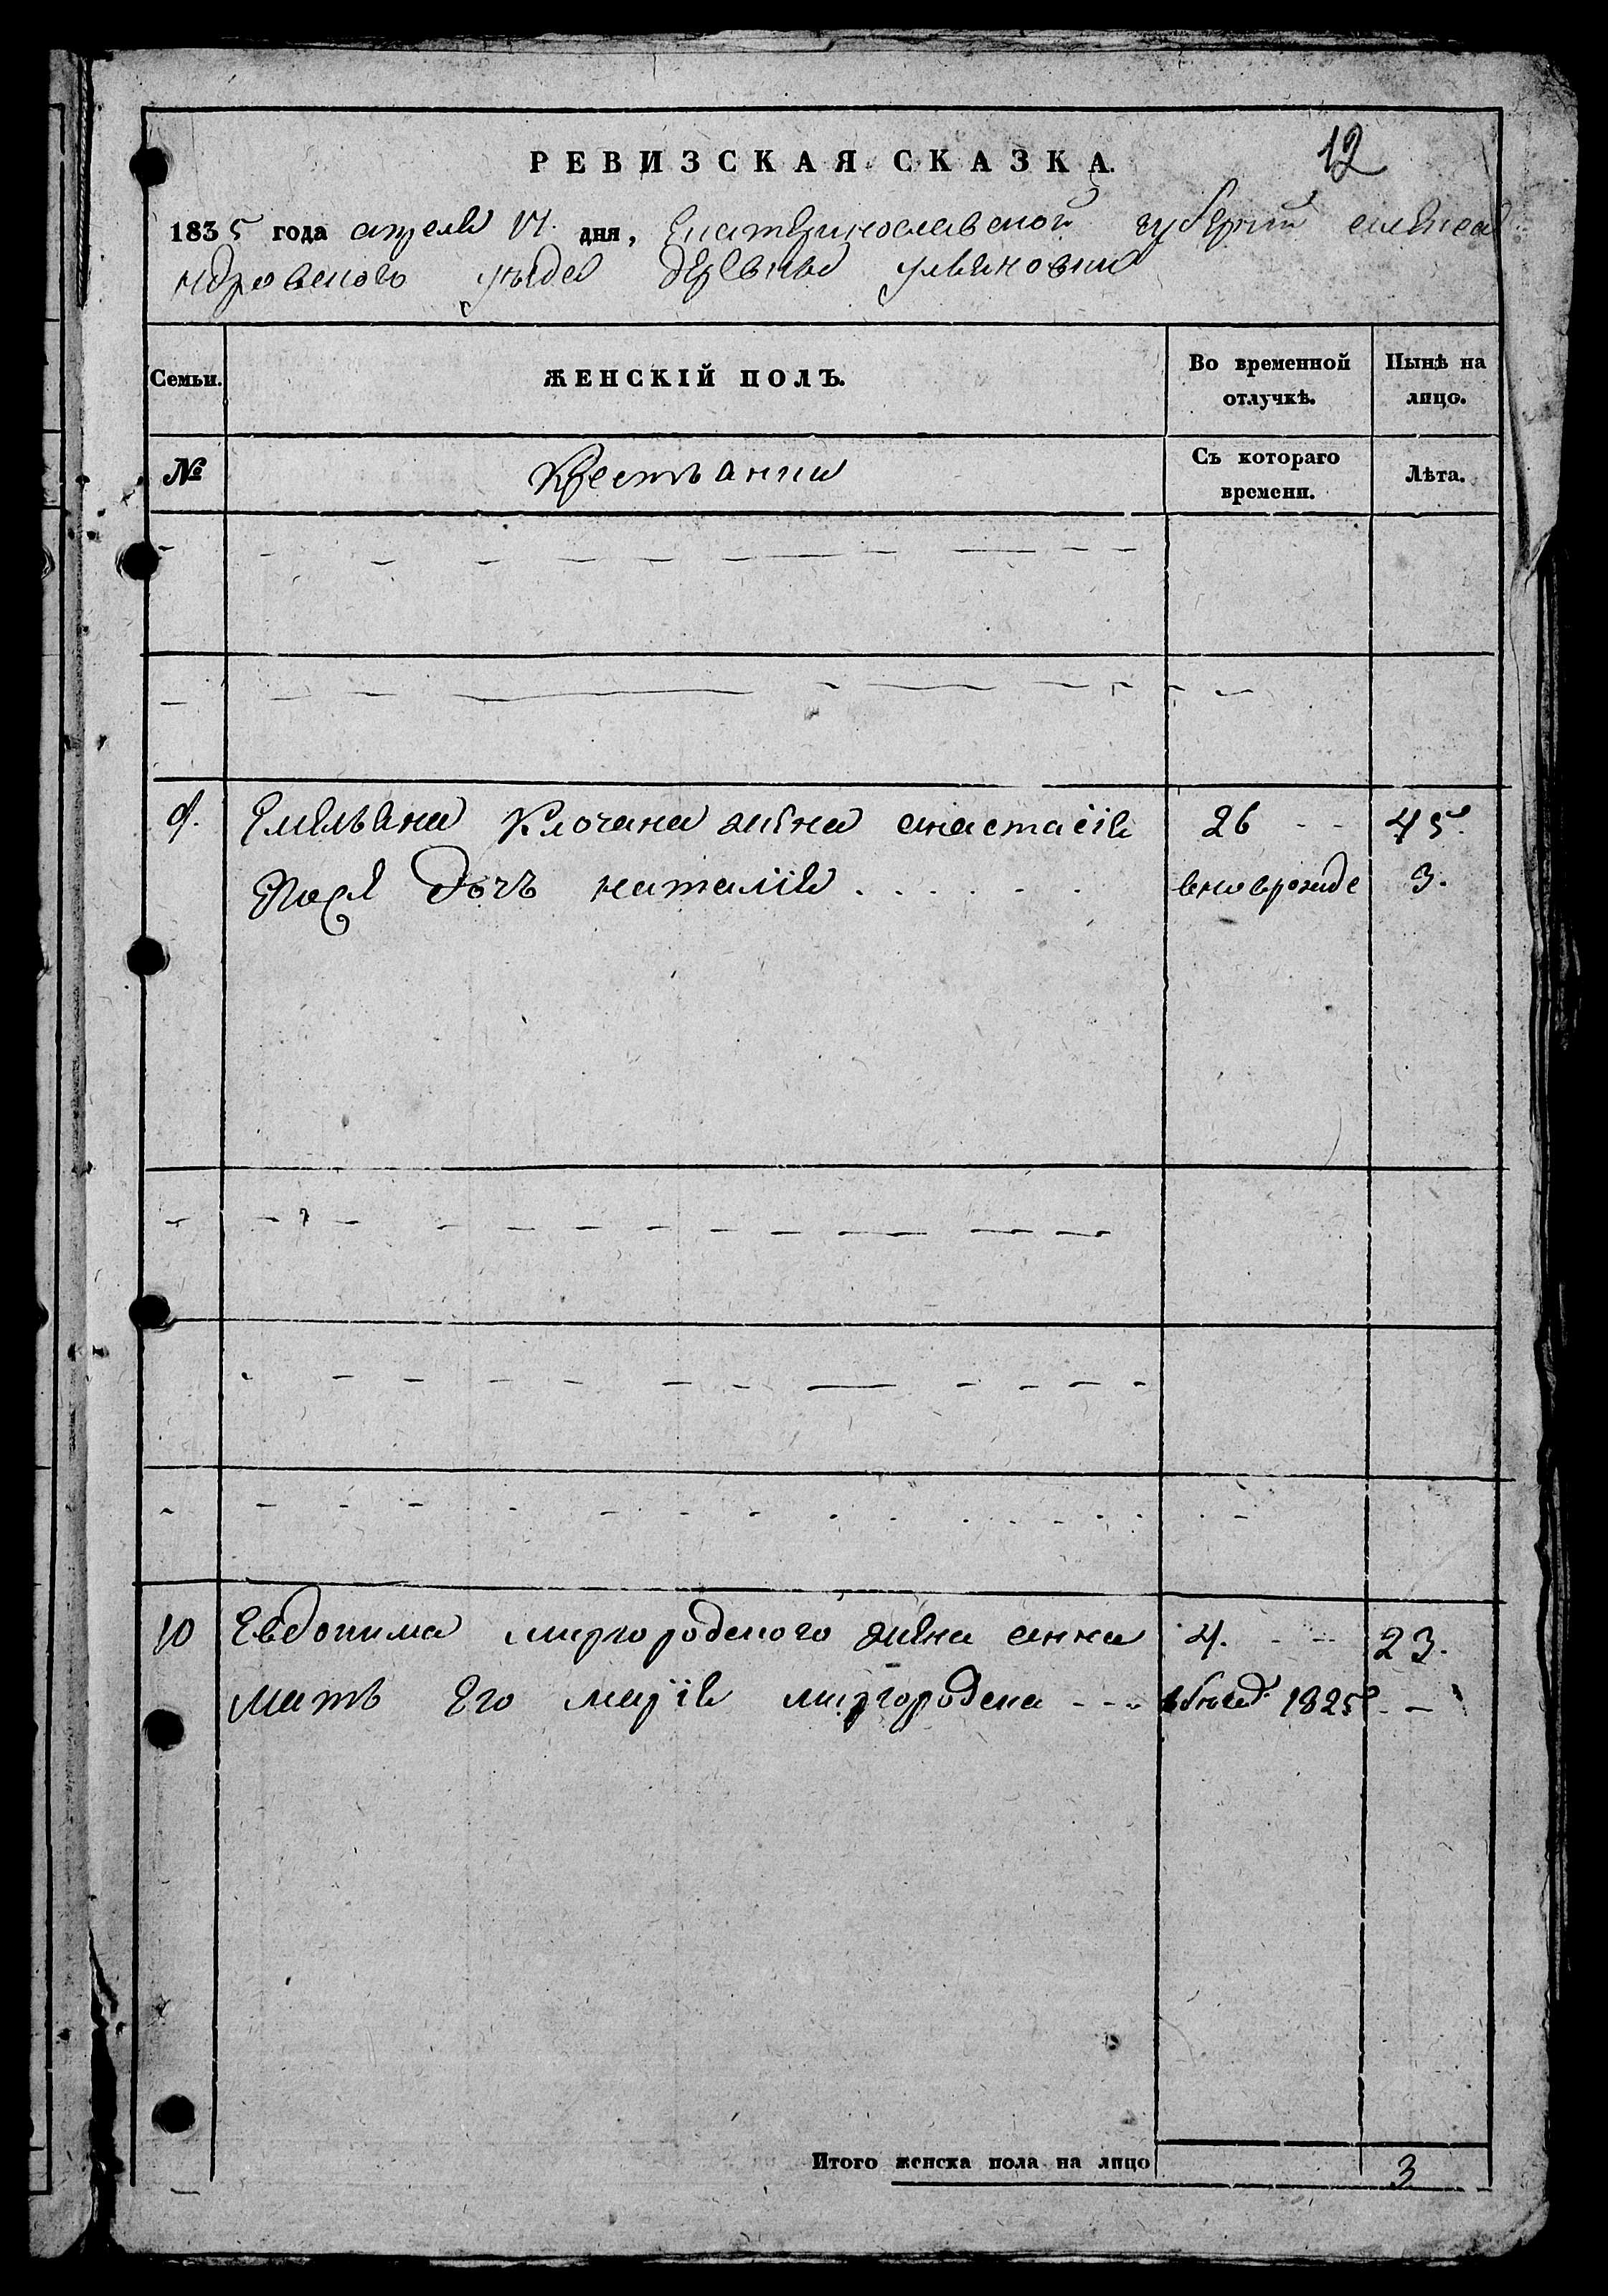 12
РЕВИЗСКАЯ СКАЗКА.
1835 года апреля 17. дня, Екатеринославской губернии алекса
ндровского уезда деревни ульяновки
Семьи. ЖЕНСКІЙ ПОЛЪ. Во временной отлучкѣ. Нынѣ на лицо.
№ Крестьянки Съ котораго времени. Лѣта.
9. Емельяна Клочана жена анастасія 26 - - 45.
дочь наталія . . . . . . вновь рожде 3.
10 Евдокима миргородского жена анна 4. - - 23.
мать Его марія миргородска - - - 1825 - -
Итого женска пола на лицо 3